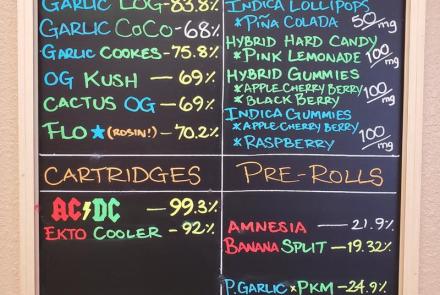 GARLIC LOG-83.8%
GARLIC COCO-68%
GARLIC COOKES-75.8%
OG KUSH — 69%
CACTUS OG-69%
FLO ★ (ROSIN!) - 70.2%
INDICA LOLLIPOPS
*PIÑA COLADA 50mg
HYBRID HARD CANDY
*PINK LEMONADE 100mg
HYBRID GUMMIES
*APPLE CHERRY BERRY
*BLACK BERRY 100mg
INDICA GUMMIES
*APPLE CHERRY BERRY
*RASPBERRY 100mg
CARTRIDGES
AC⚡DC — 99.3%
EKTO COOLER - 92%
PRE-ROLLS
AMNESIA — 21.9%
BANANA SPLIT — 19.32%
P.GARLIC × PKM - 24.9%